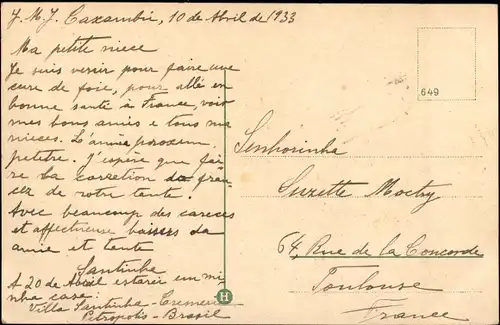 J. M. J. Caxambú, 10 de Abril de 1933
Ma petite niece
Je suis venir pour faire une
cure de foie, pour allé en
bonne santé à France, voir
mes bons amis e tous ma
nieces. L'année
petitre. J'espère que fai-
re la correction da fran-
cez de votre tante.
Avec beaucoup des careces
et affectieuse baisers da
amie et tante
Santinha
A 20 de Abril estarei em mi-
nha casa:
Villa Santinha - Cremerie
Petropolis - Brasil
649
Senhorinha
Suzette Mochy
64, Rue de la Concorde
Toulouse
France
H